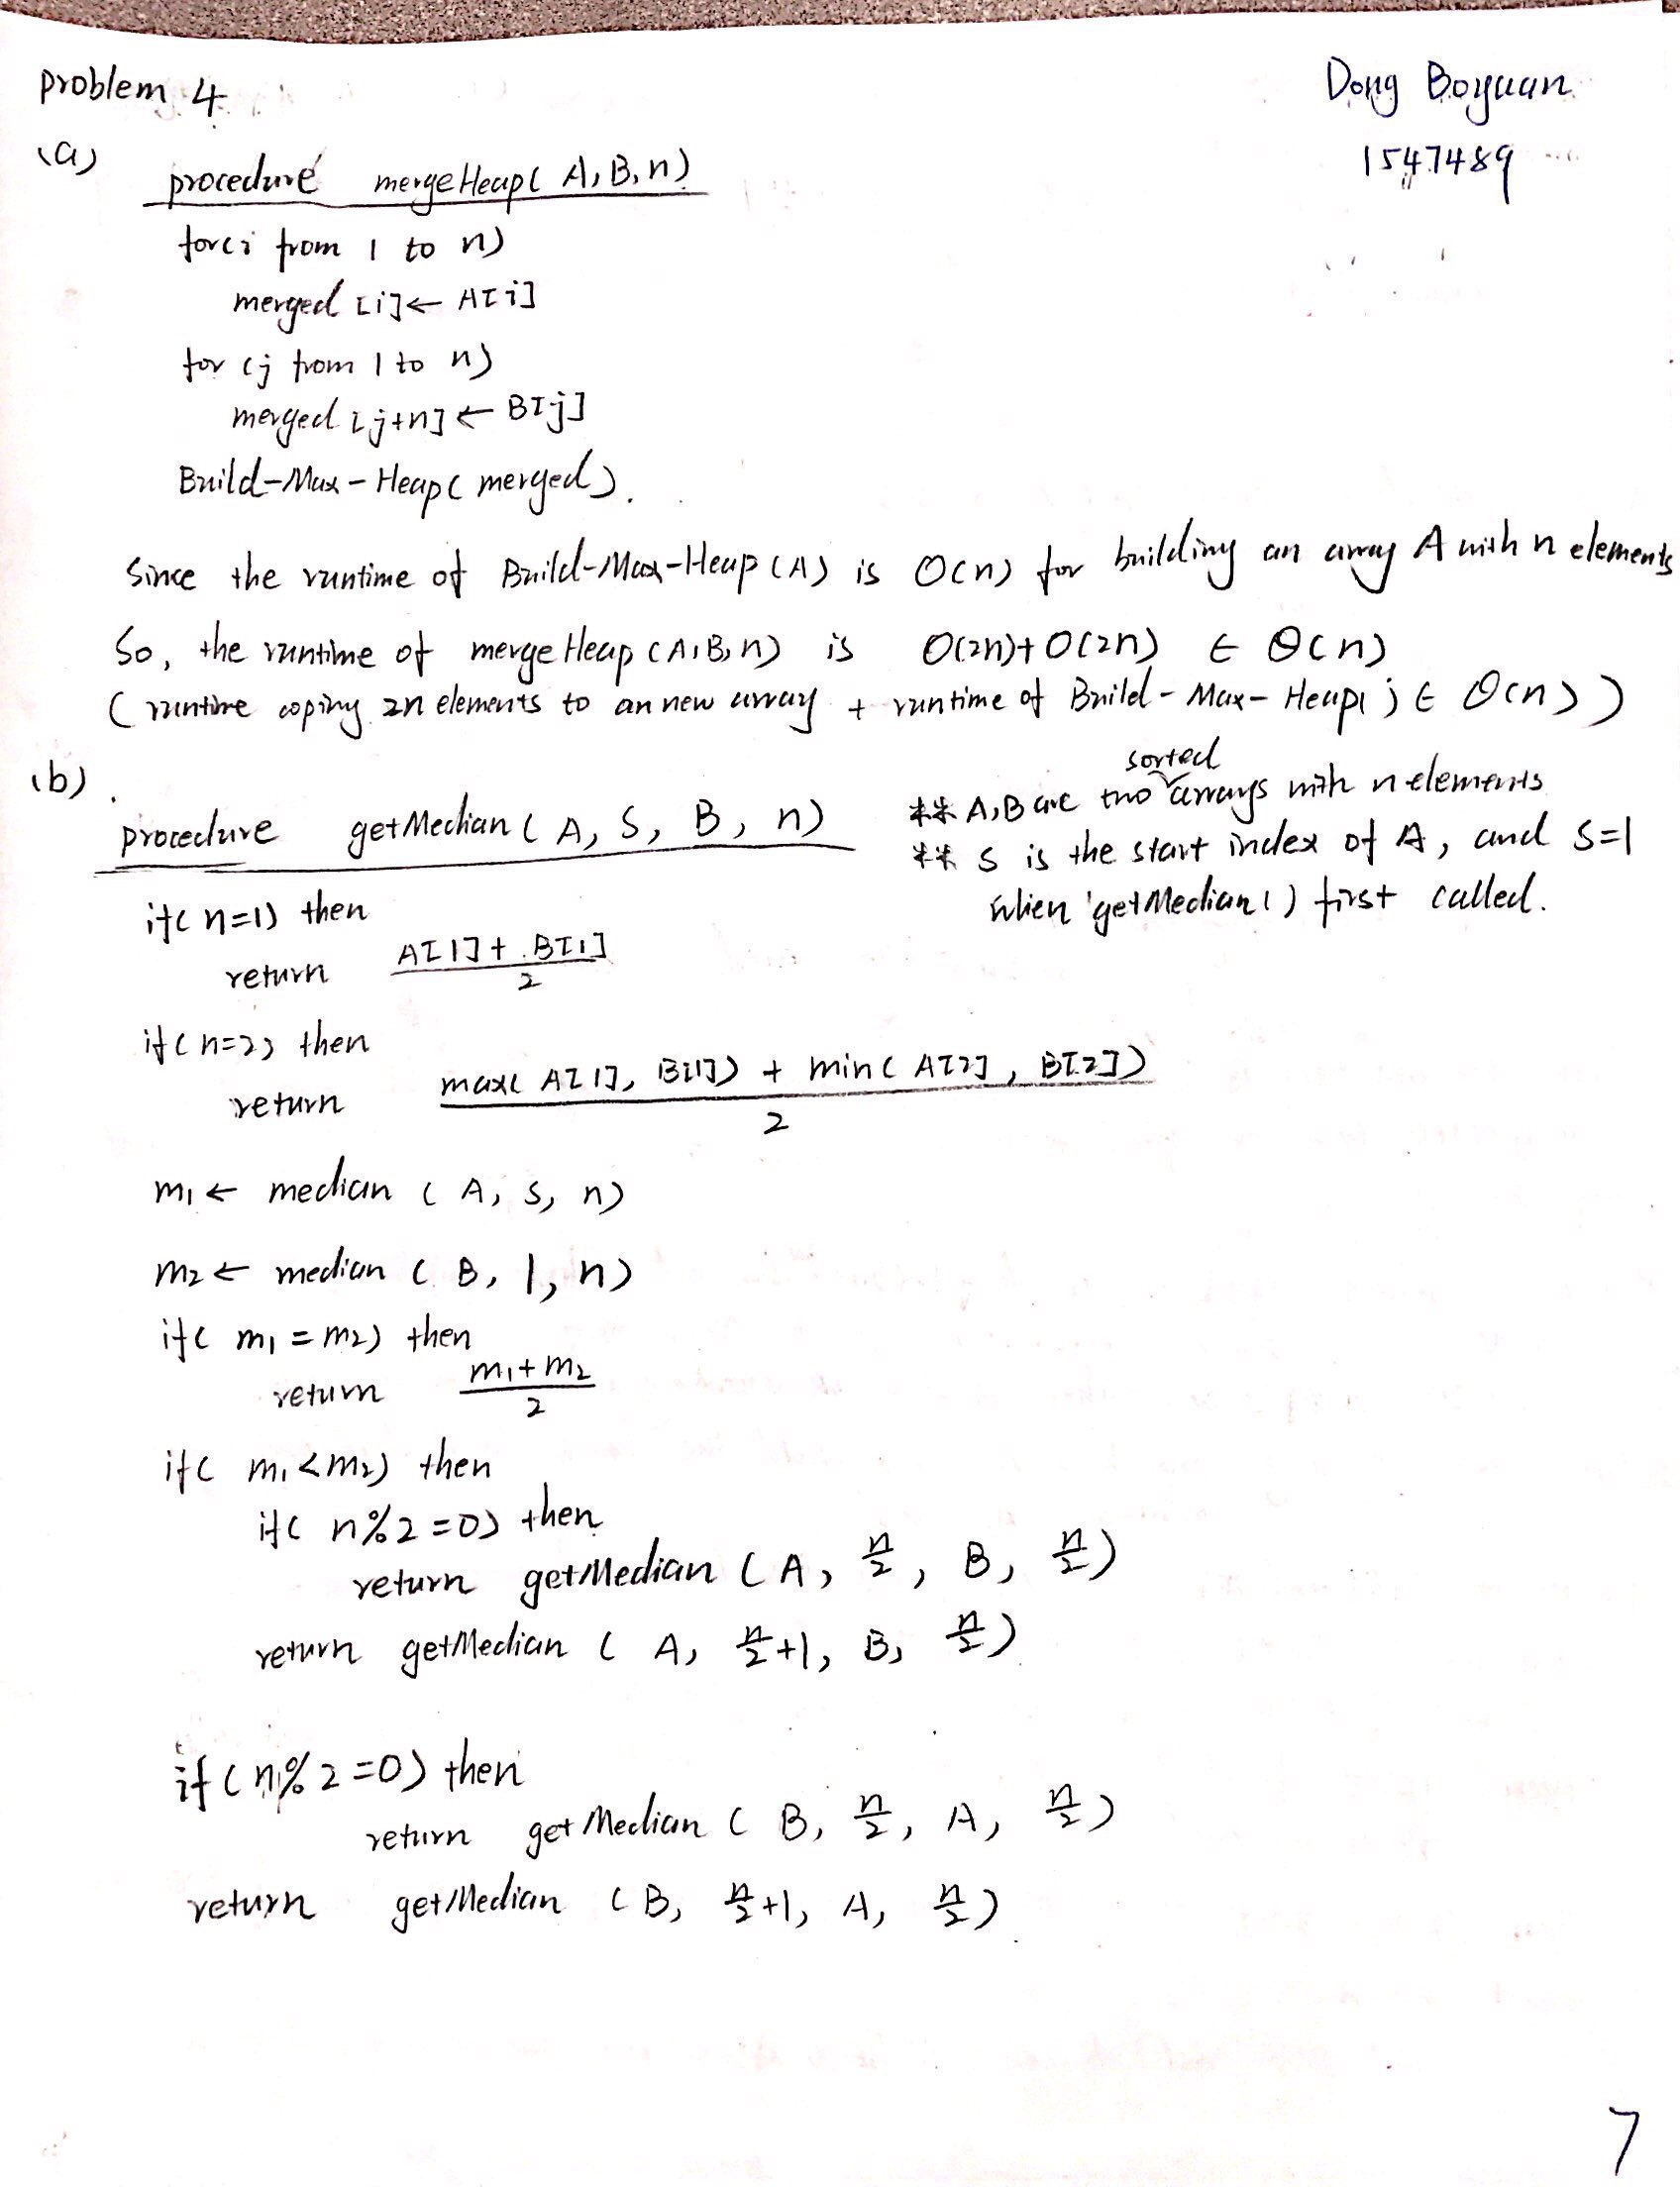 Problem 4
Dong Boyuan
1547489
(a)
procedure mergeHeap( A, B, n)
for(i from 1 to n)
merged [i] ← A[i]
for (j from 1 to n)
merged [j+n] ← B[j]
Build-Max-Heap( merged).
Since the runtime of Build-Max-Heap (A) is O(n) for building an array A with n elements
So, the runtime of mergeHeap (A, B, n) is O(2n)+O(2n) ∈ Θ(n)
( runtime coping 2n elements to an new array + runtime of Build-Max-Heap() ∈ Θ(n) )
(b)
procedure getMedian ( A, S, B, n)
** A, B are two sorted arrays with n elements
** S is the start index of A, and S=1
when getMedian() first called.
if( n=1) then
return (A[1] + B[1])/2
if( n=2) then
return (max( A[1], B[1]) + min( A[2], B[2]))/2
m₁ ← median ( A, S, n)
m₂ ← median ( B, 1, n)
if( m₁ = m₂) then
return (m₁+m₂)/2
if( m₁ < m₂) then
if( n%2=0) then
return getMedian ( A, n/2, B, n/2)
return getMedian ( A, n/2+1, B, n/2)
if ( n%2=0) then
return getMedian ( B, n/2, A, n/2)
return getMedian ( B, n/2+1, A, n/2)
7